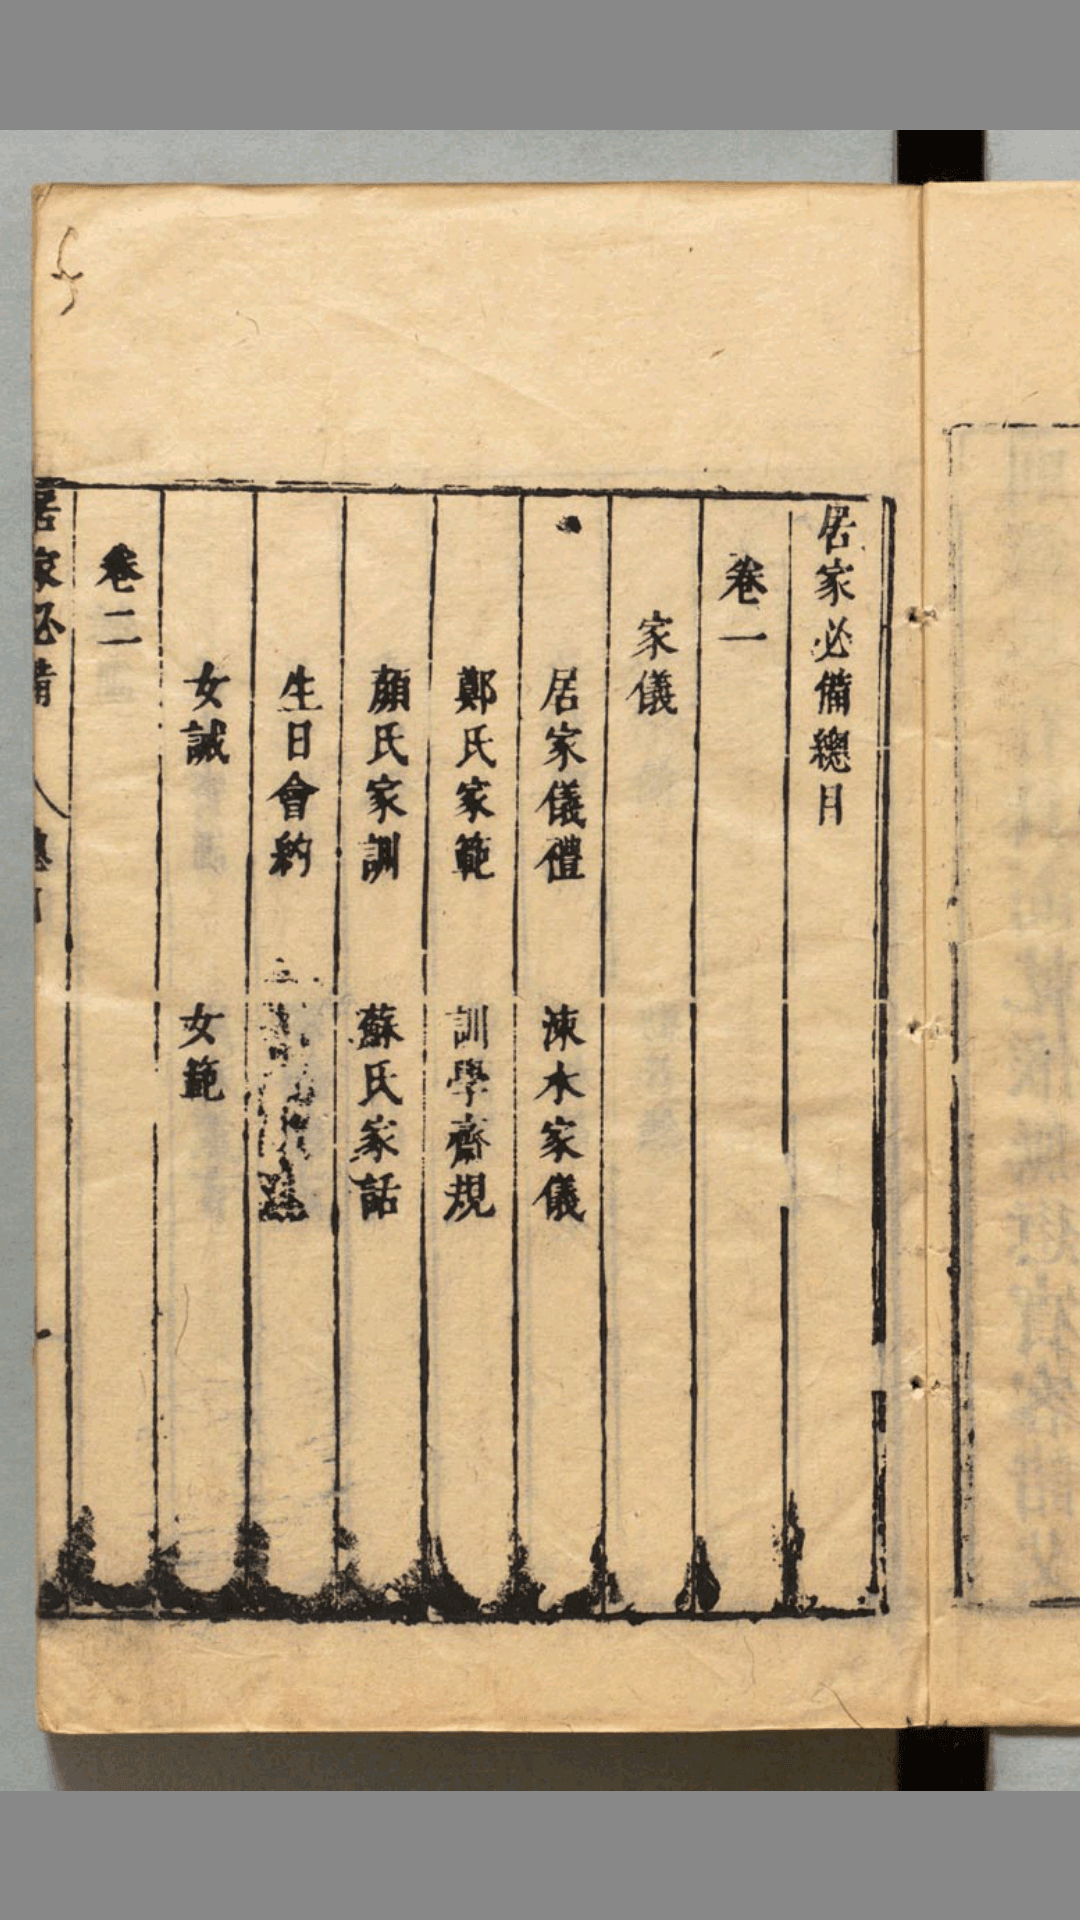 居家必備總目
卷一
家儀
居家儀禮 涑水家儀
鄭氏家範 訓學齋規
顏氏家訓 蘇氏家話
生日會約
女誡 女範
卷二
居家必備 總目